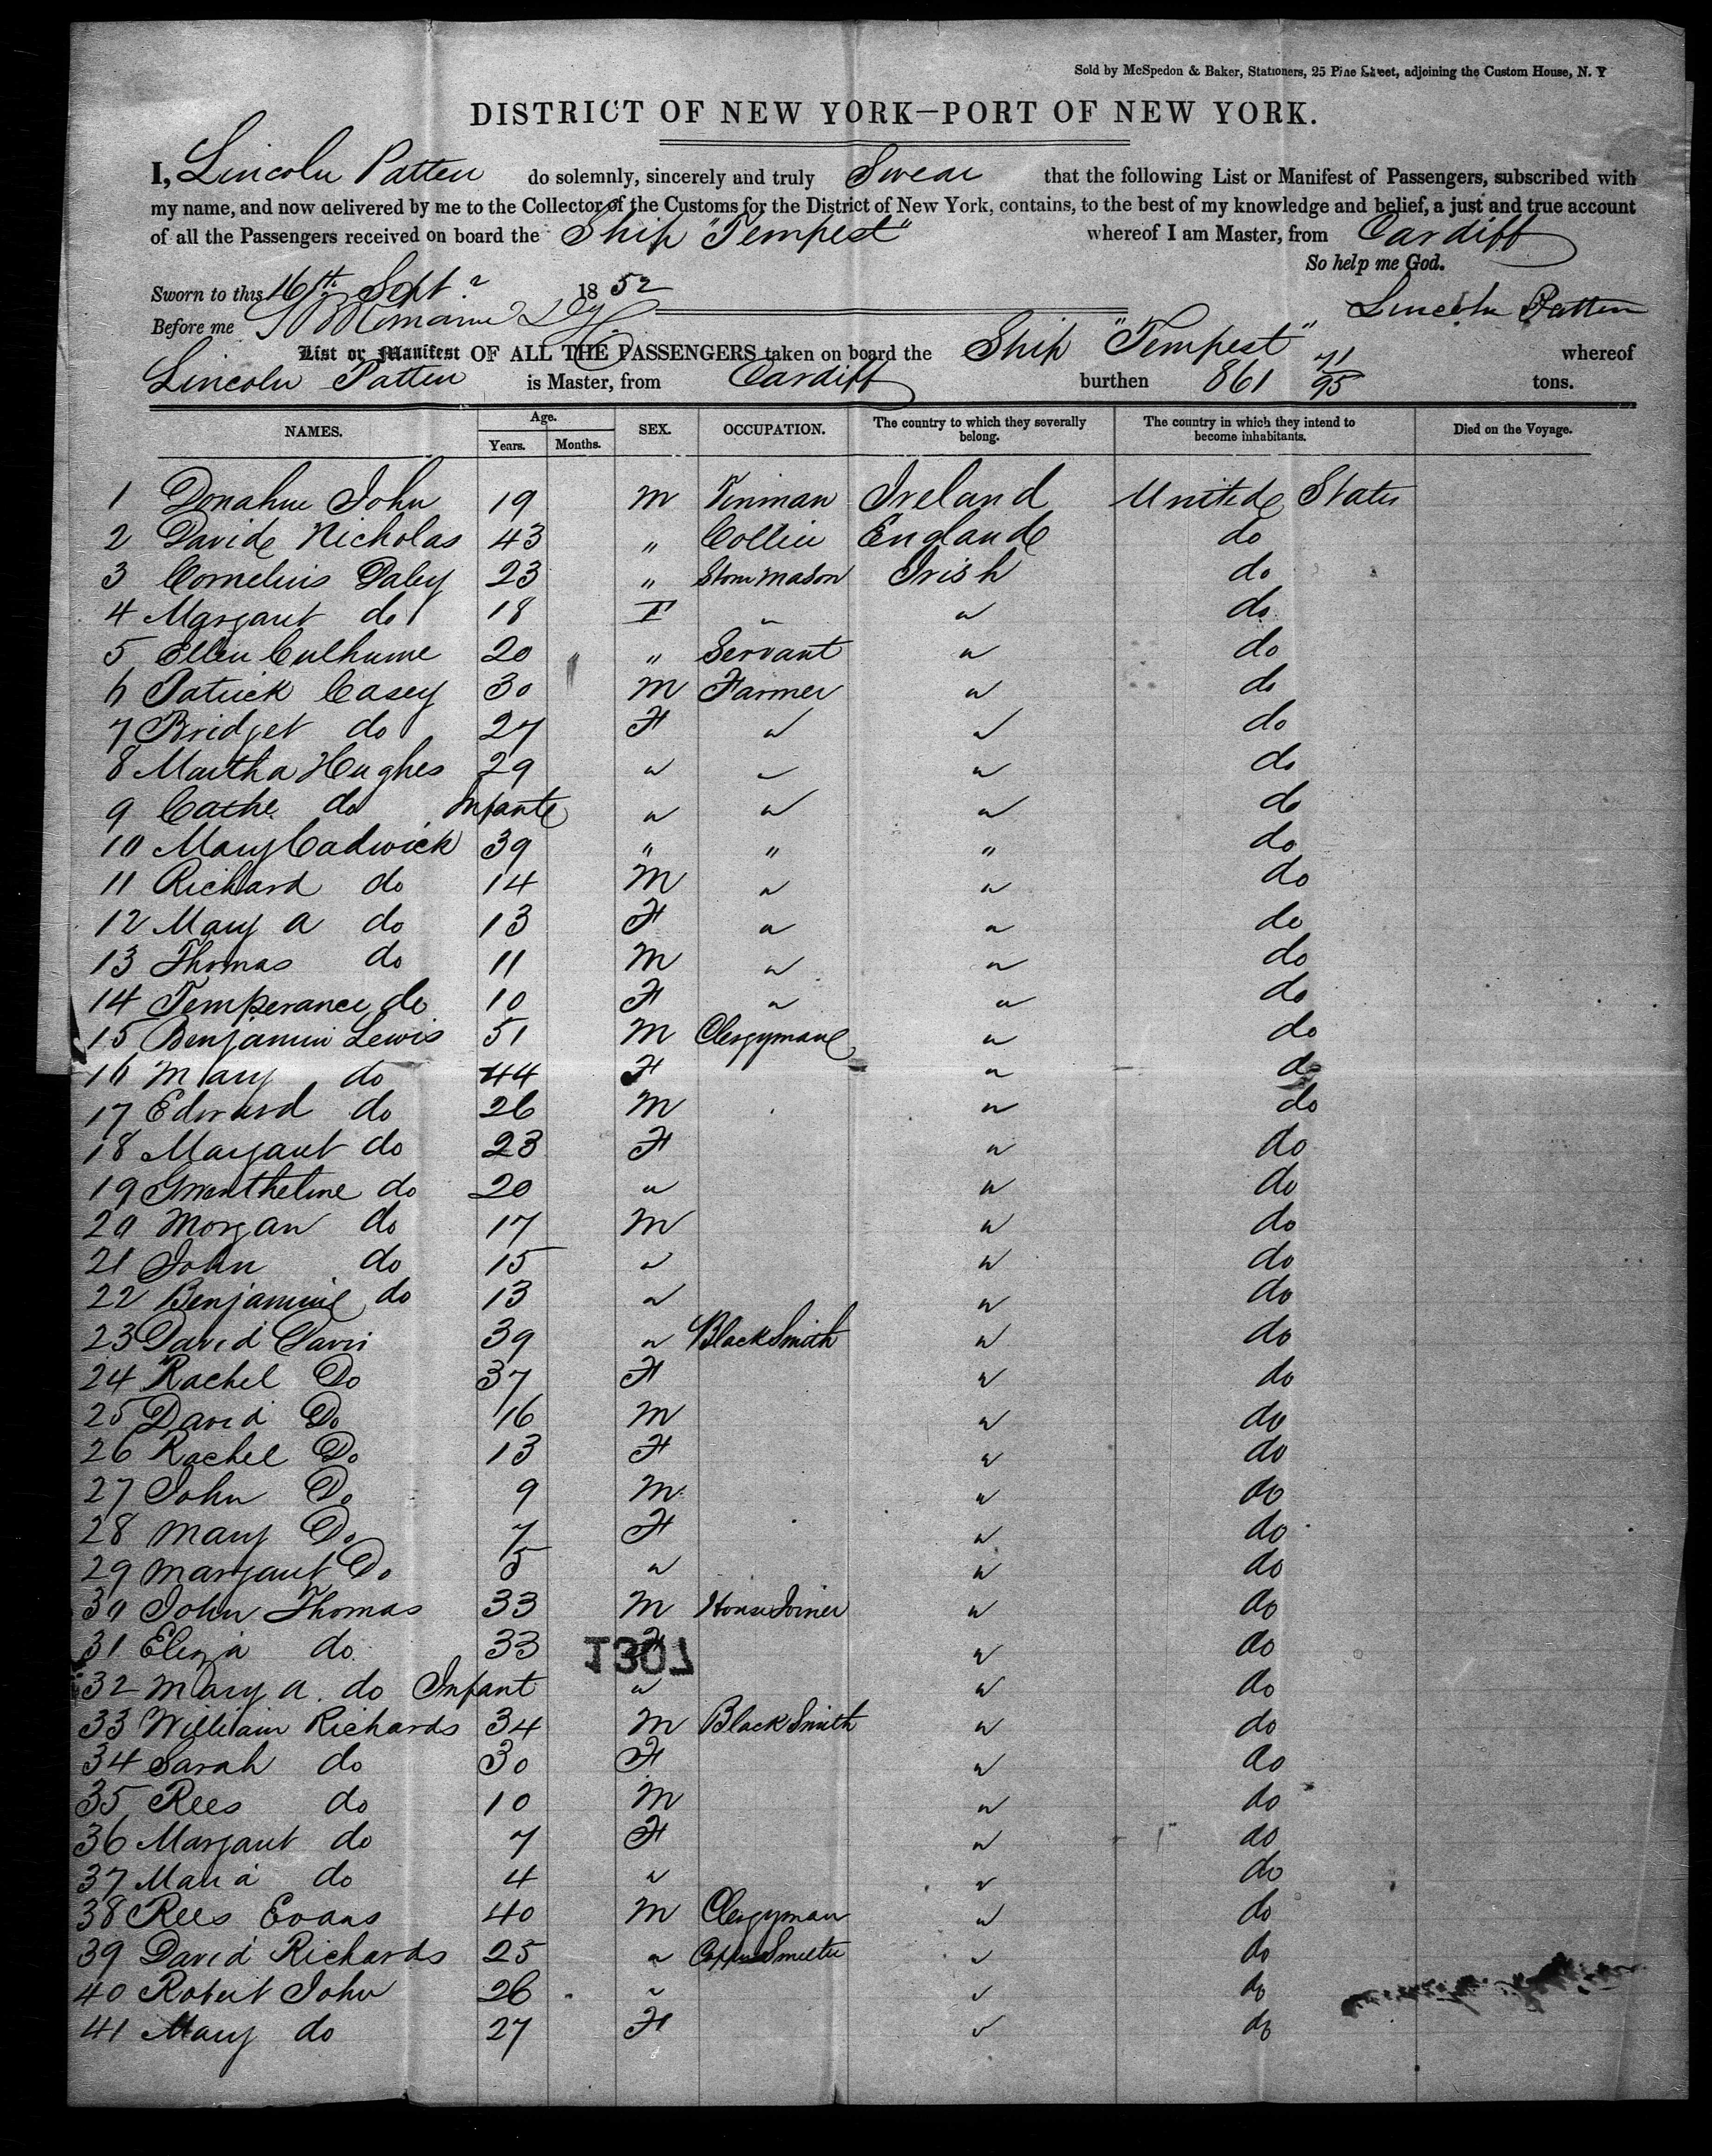 Sold by McSpedon & Baker, Stationers, 25 Pine Street, adjoining the Custom House, N. Y
DISTRICT OF NEW YORK—PORT OF NEW YORK.
I, Lincoln Patten do solemnly, sincerely and truly Swear that the following List or Manifest of Passengers, subscribed with
my name, and now delivered by me to the Collector of the Customs for the District of New York, contains, to the best of my knowledge and belief, a just and true account
of all the Passengers received on board the Ship "Tempest" whereof I am Master, from Cardiff
So help me God.
Sworn to this 16th Sept. 1852
Lincoln Patten
Before me
List or Manifest OF ALL THE PASSENGERS taken on board the Ship "Tempest" whereof
Lincoln Patten is Master, from Cardiff burthen 861 71/95 tons.
NAMES. Age. Years. Months. SEX. OCCUPATION. The country to which they severally belong. The country in which they intend to become inhabitants. Died on the Voyage.
1 Donahue John 19 M Tinman Ireland United States
2 David Nicholas 43 " Collier England do
3 Cornelius Daley 23 " Stone Mason Irish do
4 Margaret do 18 F " " do
5 Ellen 20 " Servant " do
6 Patrick Casey 30 M Farmer " do
7 Bridget do 27 F " " do
8 Martha Hughes 29 " " " do
9 Cathe. do Infant " " " do
10 Mary Cadwick 39 " " " do
11 Richard do 14 M " " do
12 Mary A do 13 F " " do
13 Thomas do 11 M " " do
14 Temperance do 10 F " " do
15 Benjamin Lewis 51 M Clergyman " do
16 Mary do 44 F " do
17 Edward do 26 M " do
18 Margaret do 23 F " do
19 Gwentheline do 20 " " do
20 Morgan do 17 M " do
21 John do 15 " " do
22 Benjamin do 13 " " do
23 David Davis 39 " BlackSmith " do
24 Rachel Do 37 F " do
25 David Do 16 M " do
26 Rachel Do 13 F " do
27 John Do 9 M " do
28 Mary Do 7 F " do
29 Margaret Do 5 " " do
30 John Thomas 33 M House Joiner " do
31 Eliza do 33 F " do
1307
32 Mary A. do Infant " " do
33 William Richards 34 M BlackSmith " do
34 Sarah do 30 F " do
35 Rees do 10 M " do
36 Margaret do 7 F " do
37 Maria do 4 " " do
38 Rees Evans 40 M Clergyman " do
39 David Richards 25 " Copper Smelter " do
40 Robert John 26 " " do
41 Mary do 27 F " do